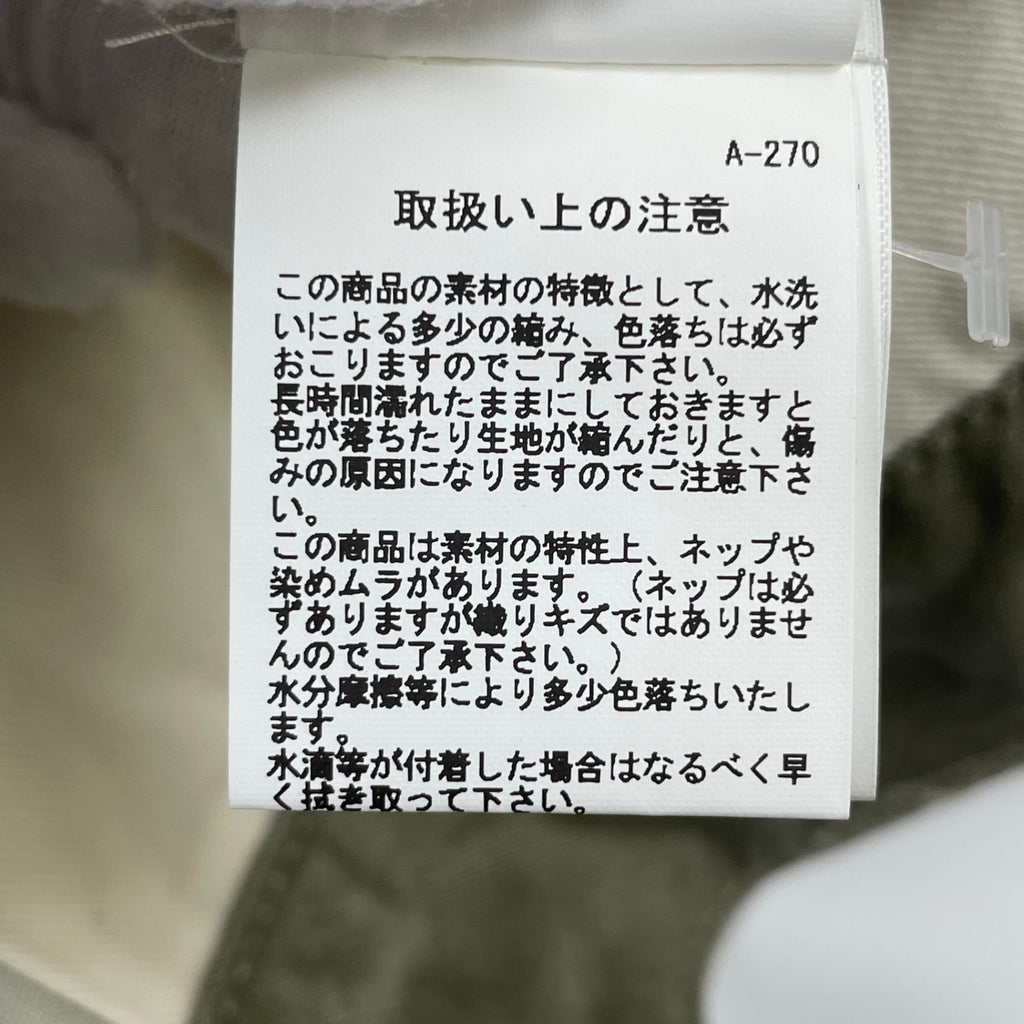 A-270
取扱い上の注意
この商品の素材の特徴として、水洗
いによる多少の縮み、色落ちは必ず
おこりますのでご了承下さい。
長時間濡れたままにしておきますと
色が落ちたり生地が縮んだりと、傷
みの原因になりますのでご注意下さ
い。
この商品は素材の特性上、ネップや
染めムラがあります。（ネップは必
ずありますが織りキズではありませ
んのでご了承下さい。）
水分摩擦等により多少色落ちいたし
ます。
水滴等が付着した場合はなるべく早
く拭き取って下さい。